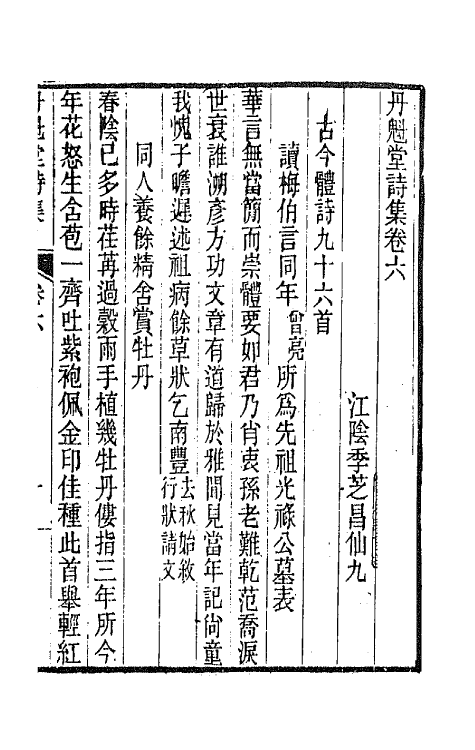 丹魁堂詩集卷六
江陰季芝昌仙九
古今體詩九十六首
讀梅伯言同年曾亮所爲先祖光祿公墓表
華言無當簡而崇體要如君乃肖衷孫老難乾范喬淚
世衰誰溯彥方功文章有道歸於雅聞見當年記尙童
我愧子瞻遲述祖病餘草狀乞南豐去秋始敘行狀請文
同人養餘精舍賞牡丹
春陰已多時荏苒過穀雨手植幾牡丹僂指三年所今
年花怒生含苞一齊吐紫袍佩金印佳種此首舉輕紅
丹魁堂詩集
卷六
一